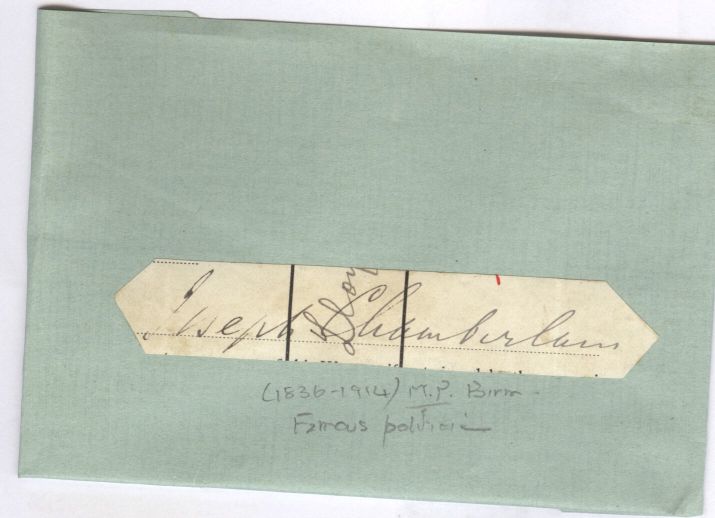 Joseph Chamberlain
(1836-1914) M.P. Birm-
Famous politician